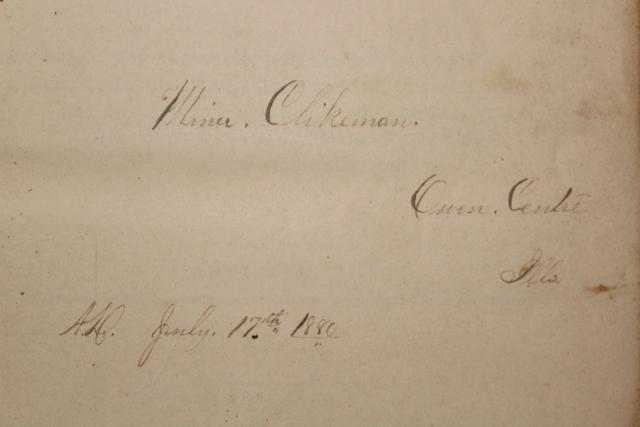 Miner. Clikeman.
Owen. Centre
Ills.
A.D. July. 17th 1880